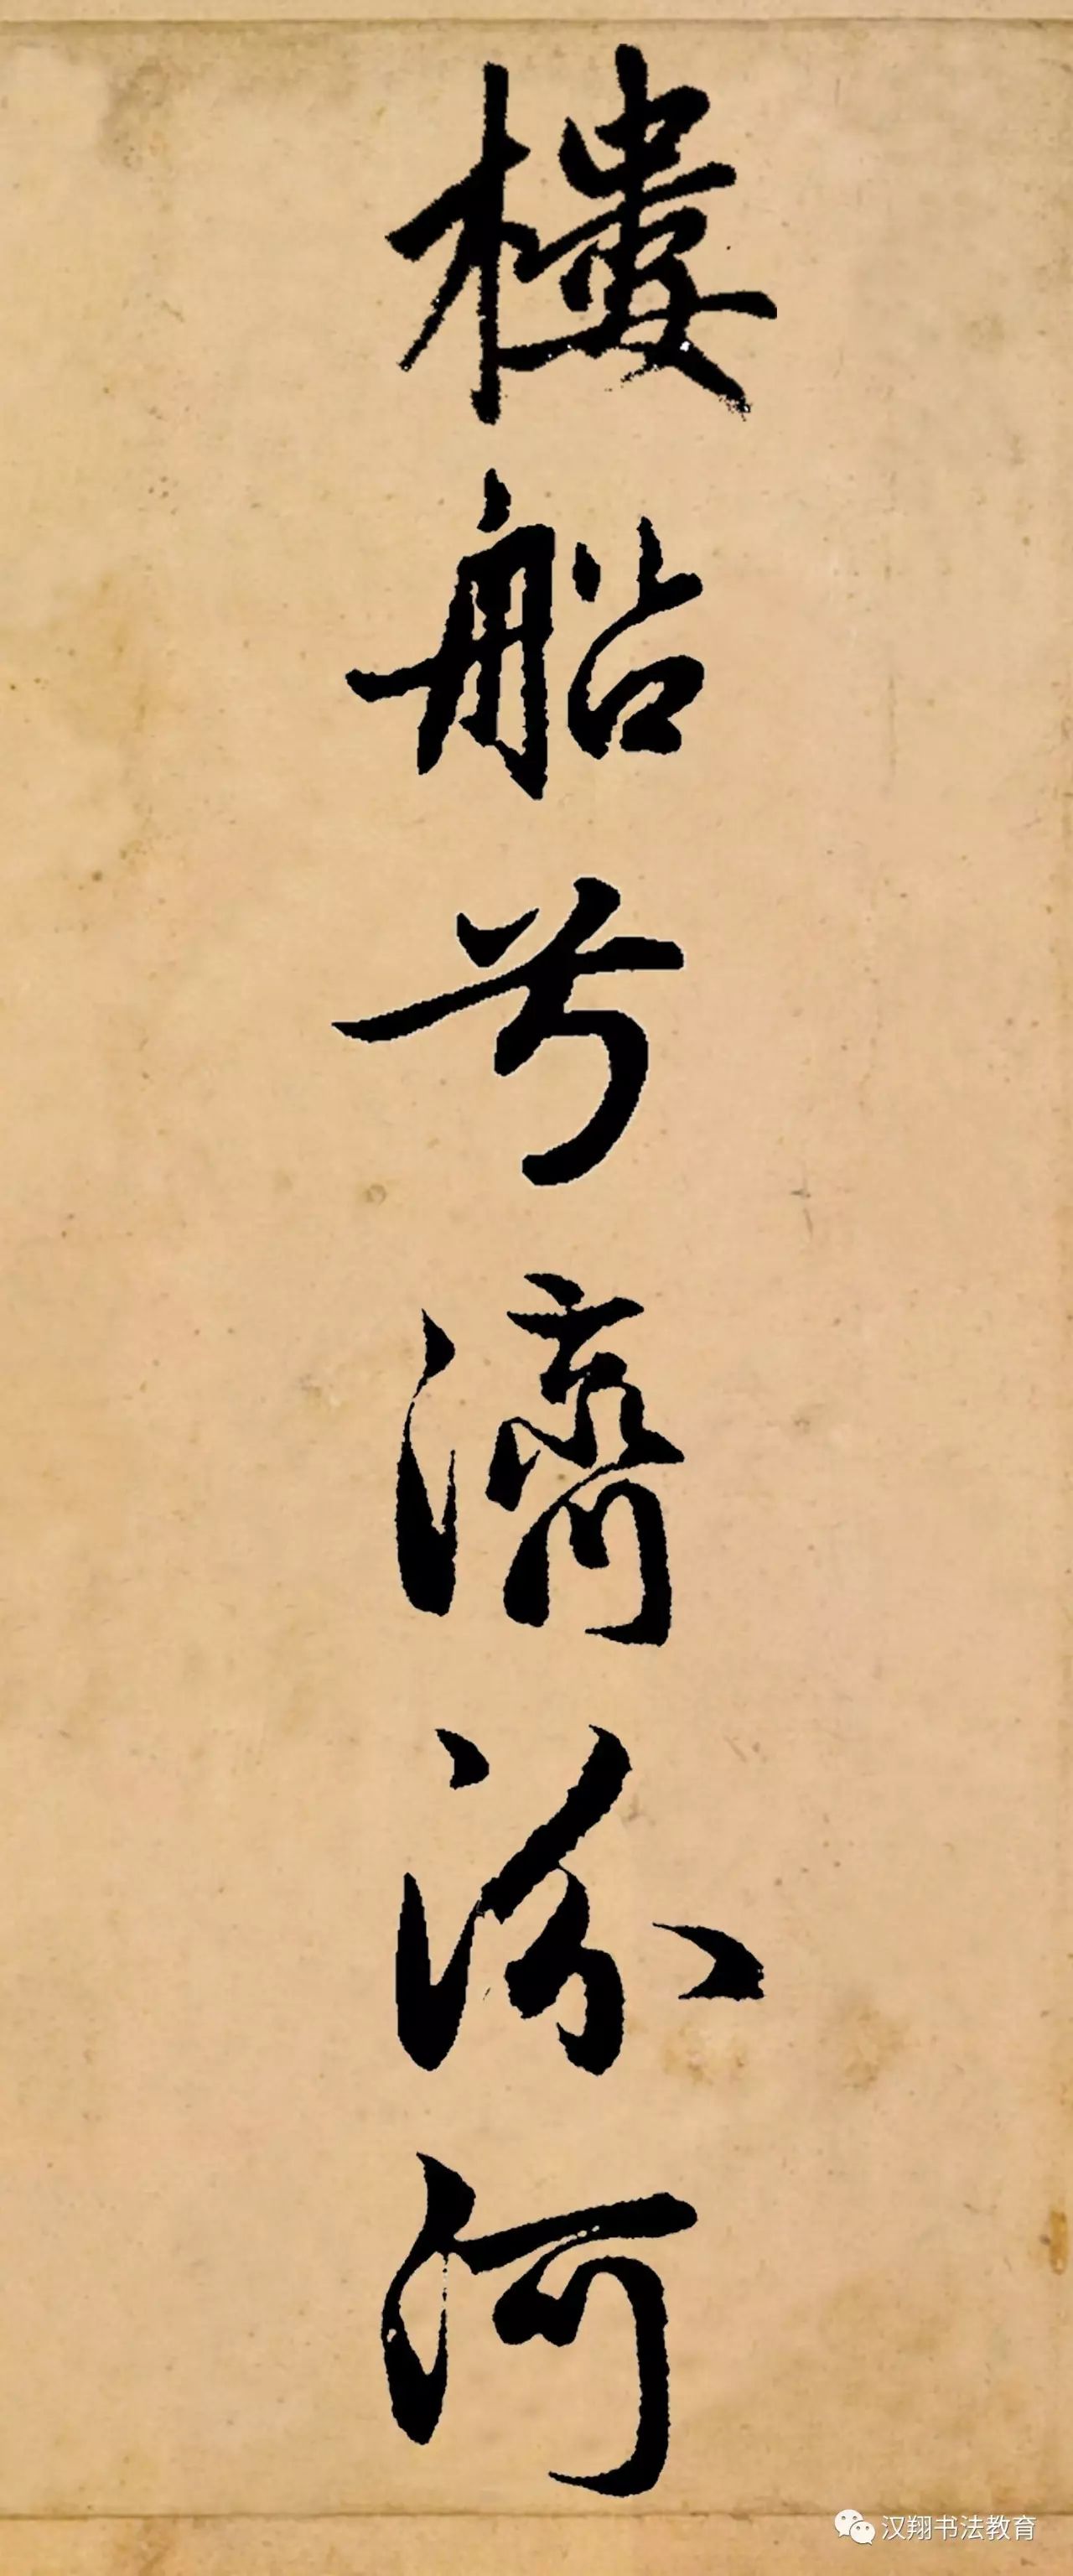 樓船兮濟汾河
汉翔书法教育